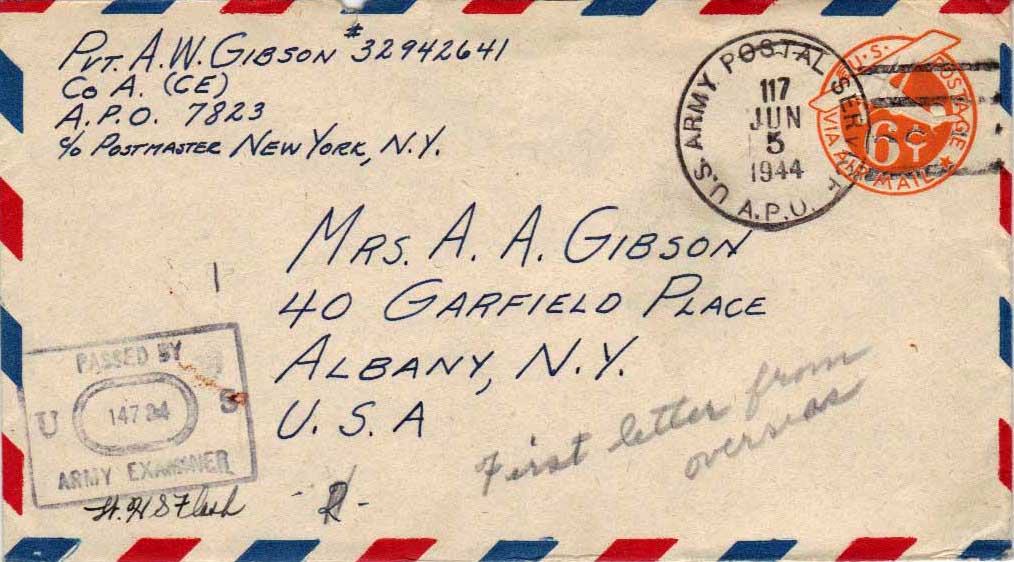 Pvt. A.W. Gibson #32942641
Co A. (CE)
A.P.O. 7823
c/o Postmaster New York, N.Y.
U.S. ARMY POSTAL SERVICE
117
JUN
5
1944
A.P.O.
U.S. POSTAGE
6¢
VIA AIR MAIL
Mrs. A. A. Gibson
40 Garfield Place
Albany, N.Y.
U.S.A
First letter from
overseas
PASSED BY
U 14724 S
ARMY EXAMINER